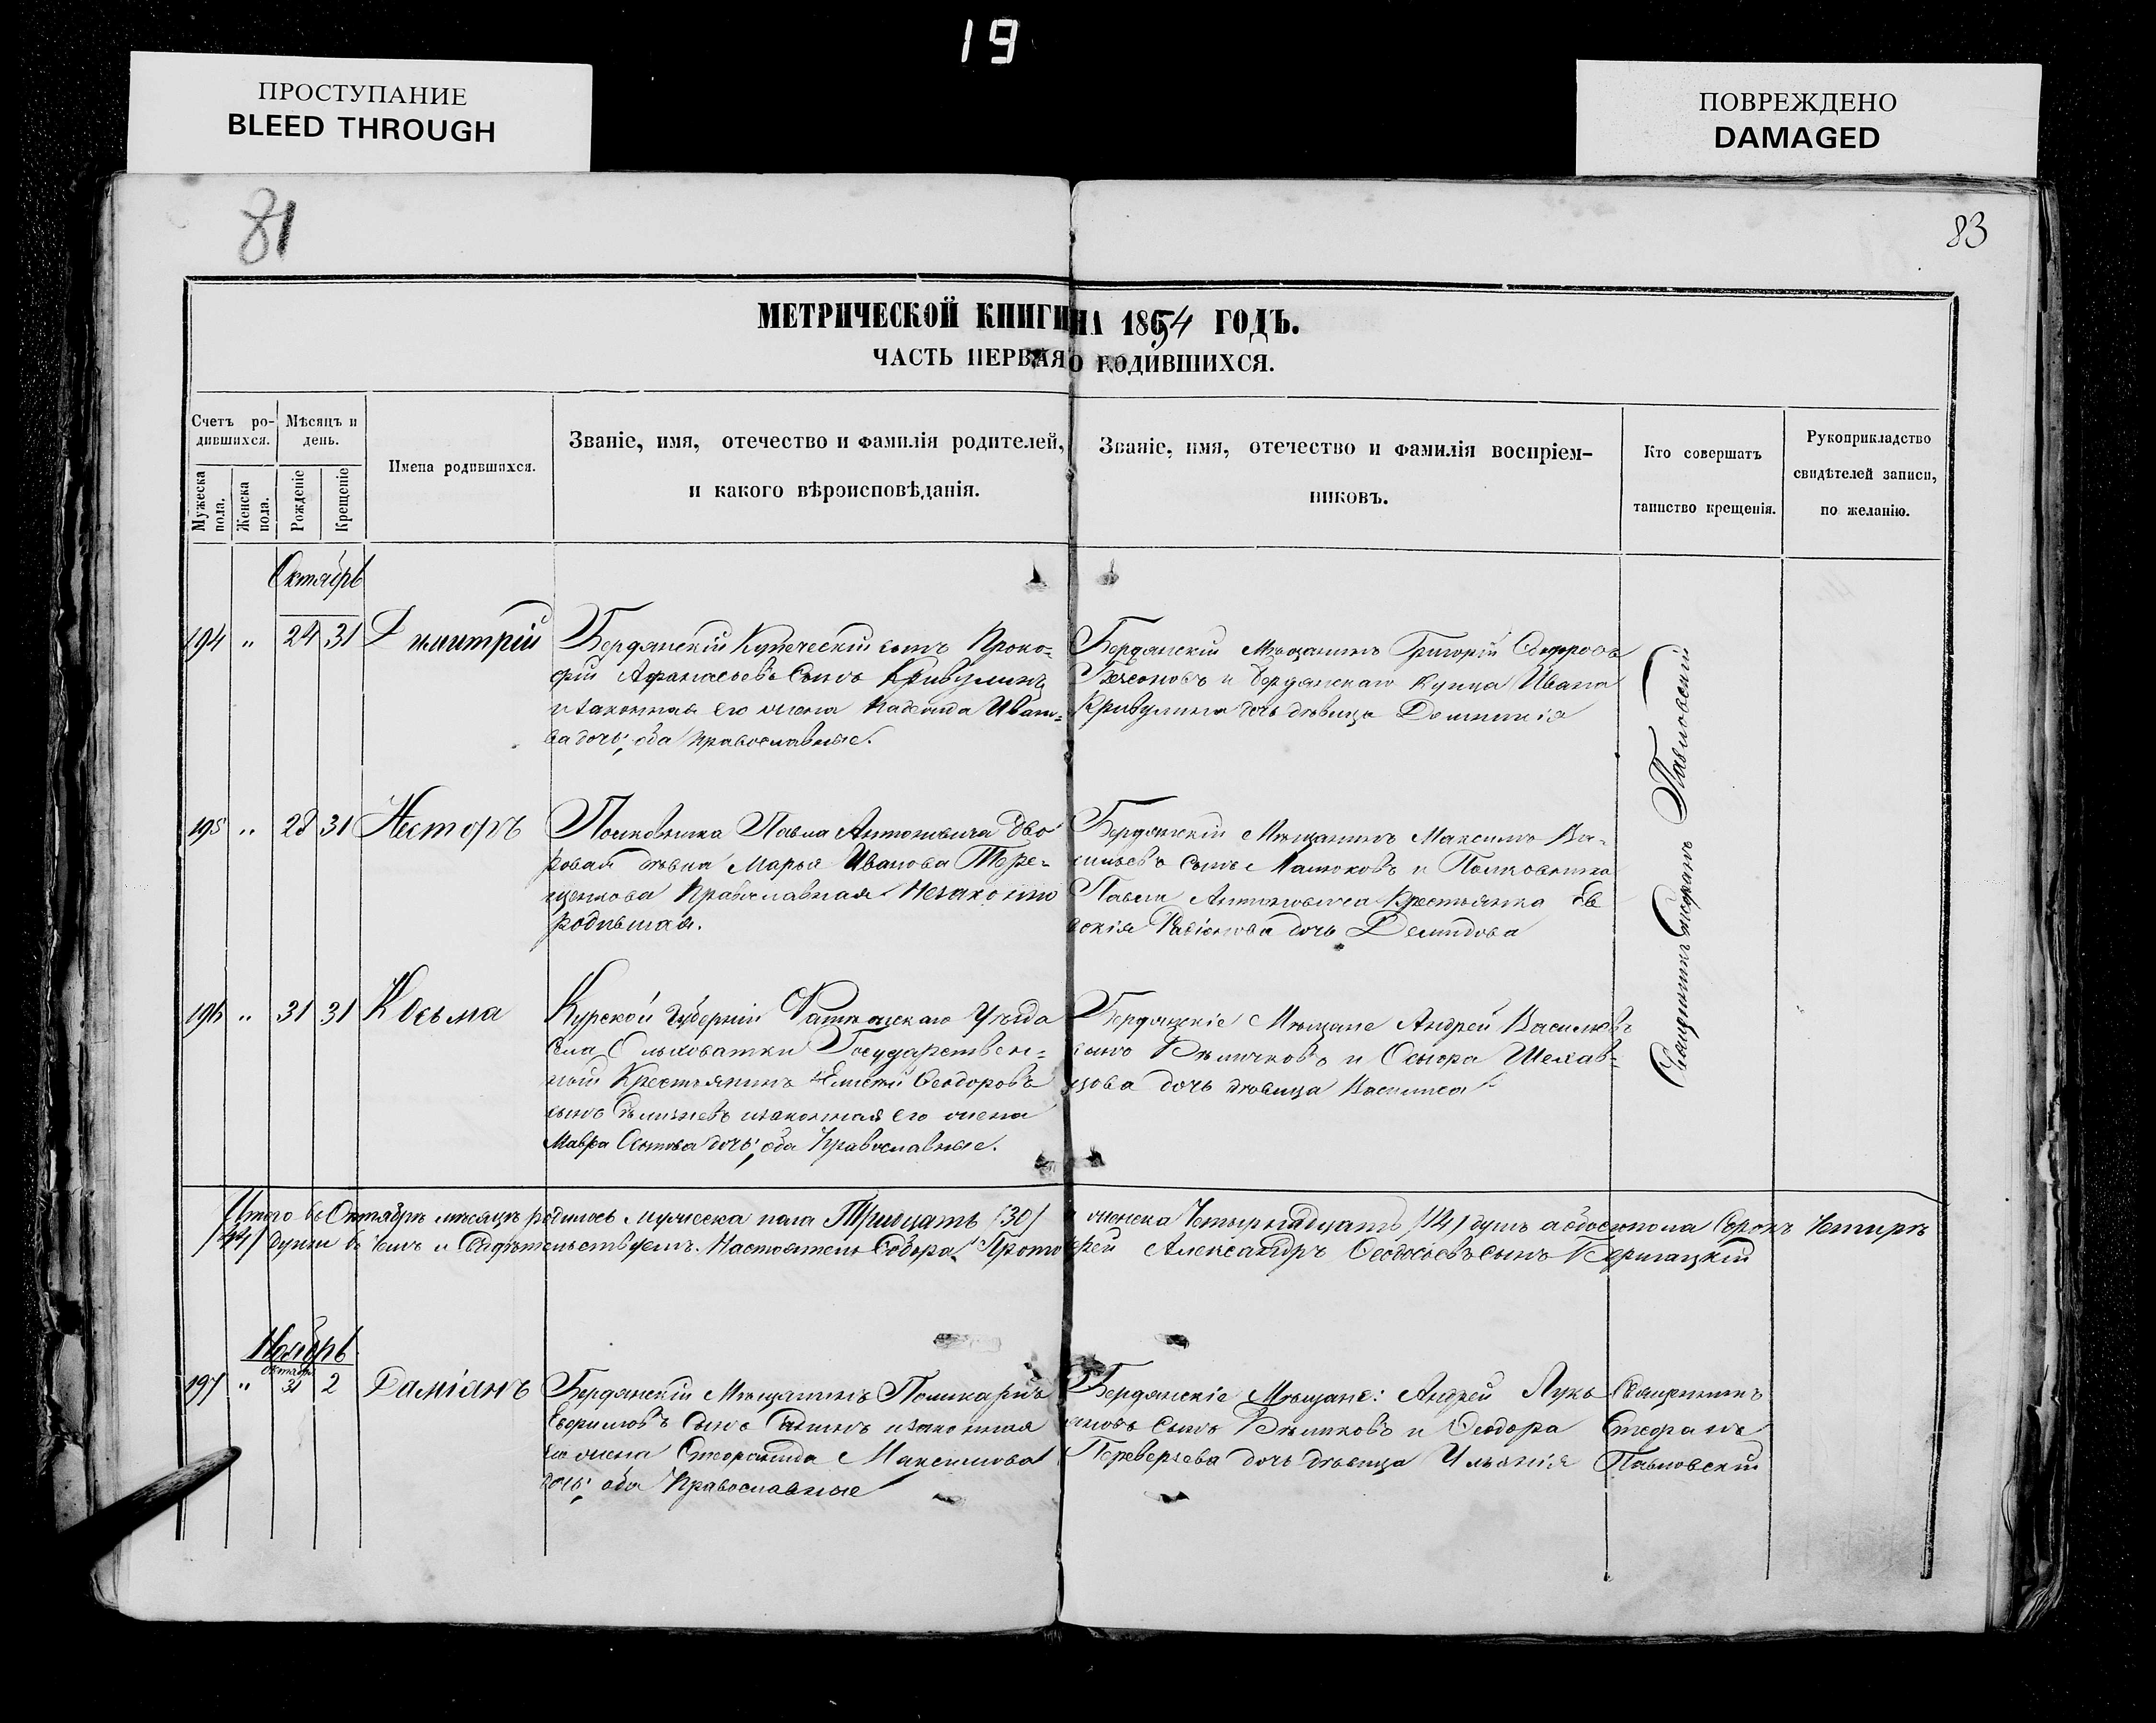 19
ПРОСТУПАНИЕ
BLEED THROUGH
ПОВРЕЖДЕНО
DAMAGED
81
83
МЕТРИЧЕСКОЙ КНИГИ НА 1854 ГОДЪ.
ЧАСТЬ ПЕРВАЯ О РОДИВШИХСЯ.
Счетъ ро-
дившихся.
Мужеска
пола.
Женска
пола.
Мѣсяцъ и
день.
Рожденіе
Крещеніе
Имена родившихся.
Званіе, имя, отечество и фамилія родителей,
и какого вѣроисповѣданія.
Званіе, имя, отечество и фамилія воспріем-
никовъ.
Кто совершалъ
таинство крещенія.
Рукоприкладство
свидѣтелей записи,
по желанію.
Октябрь
194 " 24 31 Димитрій
Бердянскій Купеческій сынъ Проко-
фій Афанасьевъ Сынъ Кривулинъ
и законная его жена Надежда Ивано-
ва дочь, оба православные.
Бердянскій Мѣщанинъ Григорій
и бердянскаго купца Ивана
Кривулина дочь дѣвица Домникія
195 " 28 31 Несторъ
Полковника Павла Антоновича дво
ровая дѣвка Марья Иванова Тере-
щенкова Православная Незаконно
родившая.
Бердянскій Мѣщанинъ Максимъ Ва-
сильевъ Сынъ и Полковника
Павла Антоновича Крестьянка Ев
докія дочь Демидова
196 " 31 31 Косьма
Курской Губерніи Уѣзда
Села Ольховатки Государствен-
ный Крестьянинъ Ѳеодоровъ
сынъ и законная его жена
Мавра дочь, оба Православные.
Бердянскіе Мѣщане Андрей
сынъ и
цова дочь дѣвица Василиса
Священникъ Стефанъ Павловскій
Итого въ Октябрѣ мѣсяцѣ родилось мужеска пола Тридцать /30/ женска Четырнадцать /14/ душъ а обоего пола Сорокъ Четыре
/44/ души въ чемъ и свидѣтельствуемъ. Настоятель Собора Протоіерей Александръ Ѳеодосіевъ сынъ
Ноябрь
Октября
197 " 31 2 Даміанъ
Бердянскій Мѣщанинъ Поликарпъ
Евфимовъ Сынъ и законная
его жена Стефанида Максимова
дочь, оба Православные
Бердянскіе Мѣщане: Андрей Лукь
яновъ Сынъ и Ѳеодора
Переверзева дочь дѣвица Ульянія
Священникъ
Стефанъ
Павловскій